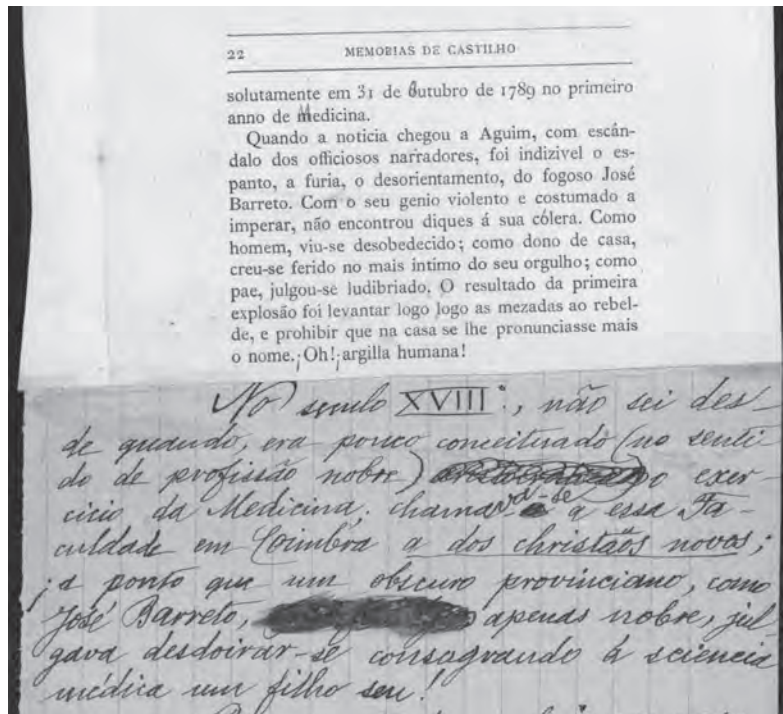 22 MEMORIAS DE CASTILHO
solutamente em 31 de outubro de 1789 no primeiro
anno de Medicina.
Quando a noticia chegou a Aguim, com escân-
dalo dos officiosos narradores, foi indizivel o es-
panto, a furia, o desorientamento, do fogoso José
Barreto. Com o seu genio violento e costumado a
imperar, não encontrou diques á sua cólera. Como
homem, viu-se desobedecido; como dono de casa,
creu-se ferido no mais intimo do seu orgulho; como
pae, julgou-se ludibriado. O resultado da primeira
explosão foi levantar logo logo as mezadas ao rebel-
de, e prohibir que na casa se lhe pronunciasse mais
o nome. ¡Oh! ¡argilla humana!
No seculo XVIII.º, não sei des-
de quando, era pouco conceituado (no senti-
do de profissão nobre) o exer-
cicio da Medicina. chamava-se a essa Fa-
culdade em Coimbra a dos christãos novos;
¡a ponto que um obscuro provinciano, como
José Barreto, apenas nobre, jul-
gava desdoirar-se consagrando á sciencia
médica um filho seu!